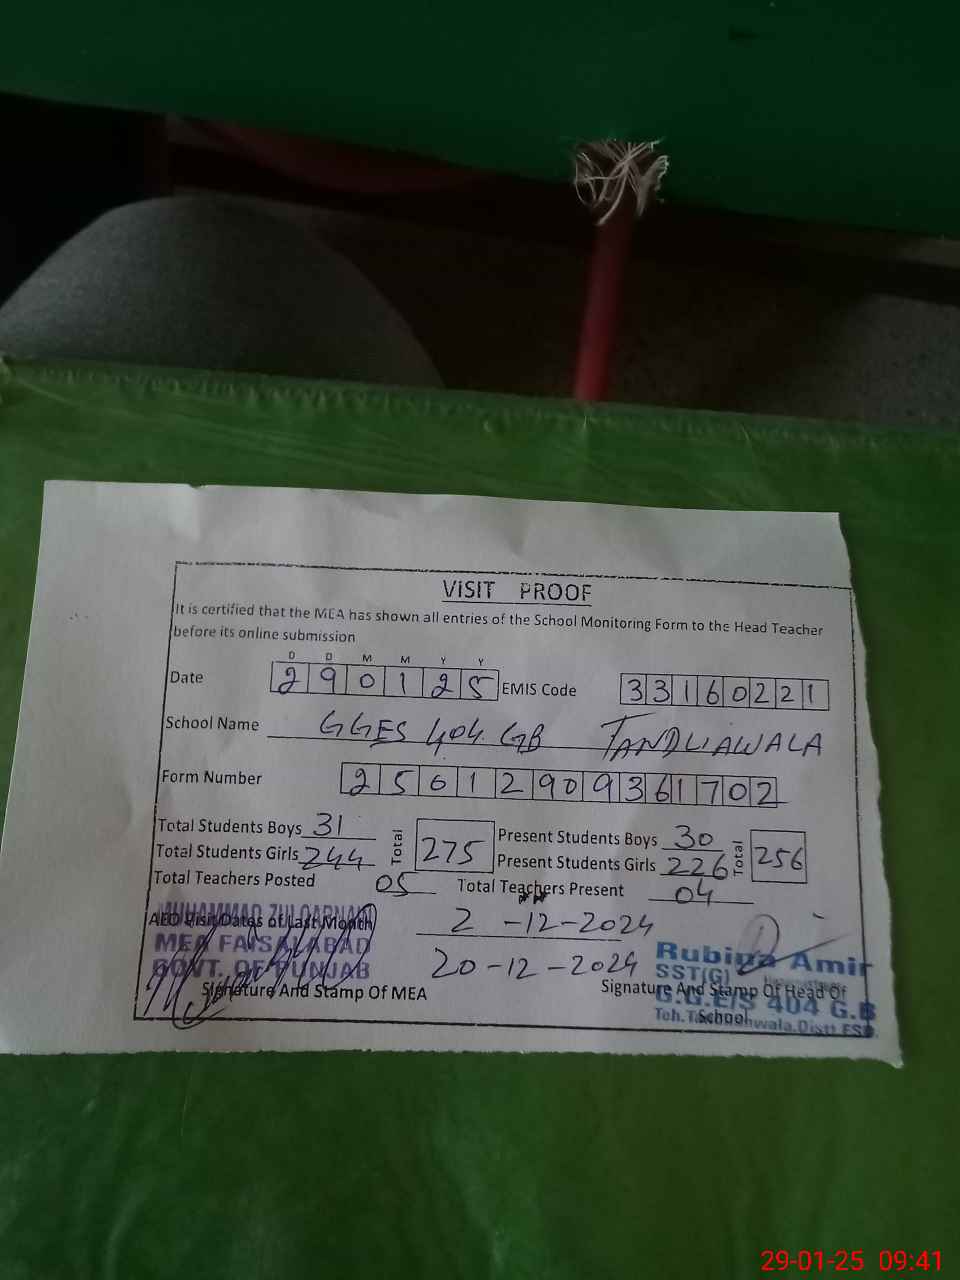 VISIT PROOF
It is certified that the MEA has shown all entries of the School Monitoring Form to the Head Teacher
before its online submission
D D M M Y Y
Date 290125 EMIS Code 33160221
School Name GGES 404 GB TANDLIAWALA
Form Number 25012909361702
Total Students Boys 31 Total 275 Present Students Boys 30 Total 256
Total Students Girls 244 Present Students Girls 226
Total Teachers Posted 05 Total Teachers Present 04
AEO Visit Dates of Last Month 2-12-2024
20-12-2024
MUHAMMAD ZULQARNAIN
MEA FAISALABAD
GOVT. OF PUNJAB
Signature And Stamp Of MEA
Rubina Amir
SST(G)
G.G.E/S 404 G.B
Signature And Stamp Of Head Of
School
29-01-25 09:41